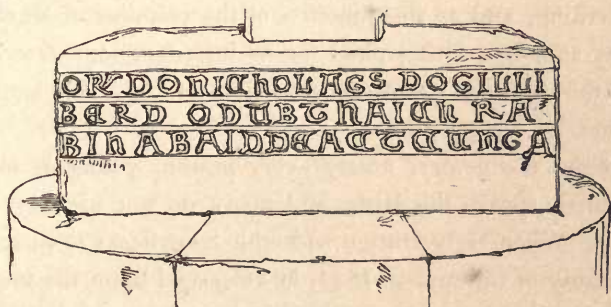 OR DONIChOLAGS DOGILLI
BERD ODUBThAICh RA
BIhABAIDDEACTCUNGA